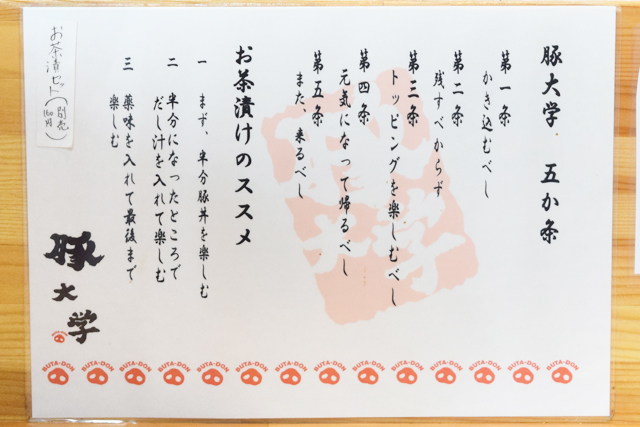 豚大学 五か条
第一条
かき込むべし
第二条
残すべからず
第三条
トッピングを楽しむべし
第四条
元気になって帰るべし
第五条
また、来るべし
お茶漬けのススメ
一 まず、半分豚丼を楽しむ
二 半分になったところで
だし汁を入れて楽しむ
三 薬味を入れて最後まで
楽しむ
お茶漬セット(別売
100円)
豚大学
BUTA-DON
豚大学
BUTA-DON BUTA-DON BUTA-DON BUTA-DON BUTA-DON BUTA-DON BUTA-DON BUTA-DON BUTA-DON BUTA-DON BUTA-DON BUTA-DON BUTA-DON BUTA-DON